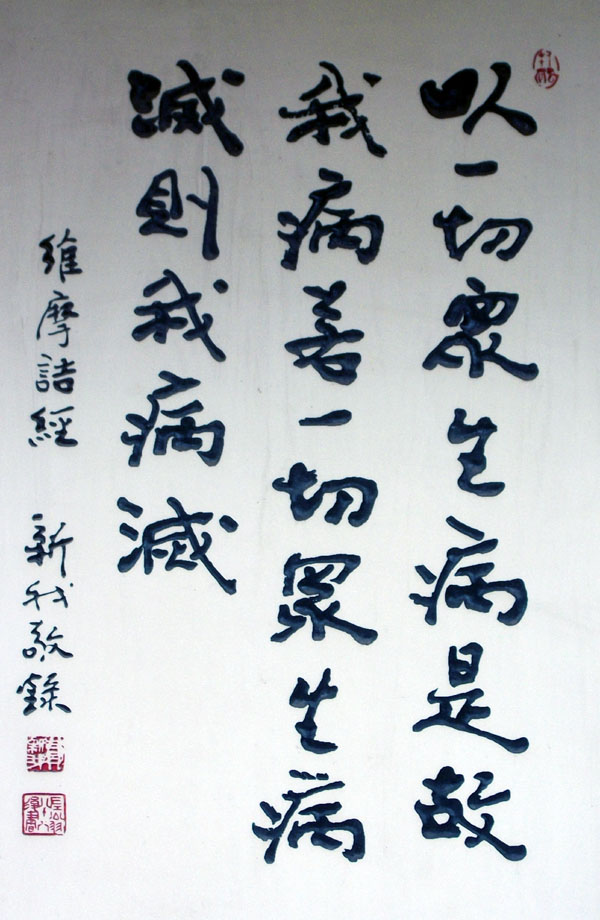 以一切眾生病是故
我病若一切眾生病
滅則我病滅
維摩詰經 新我敬錄